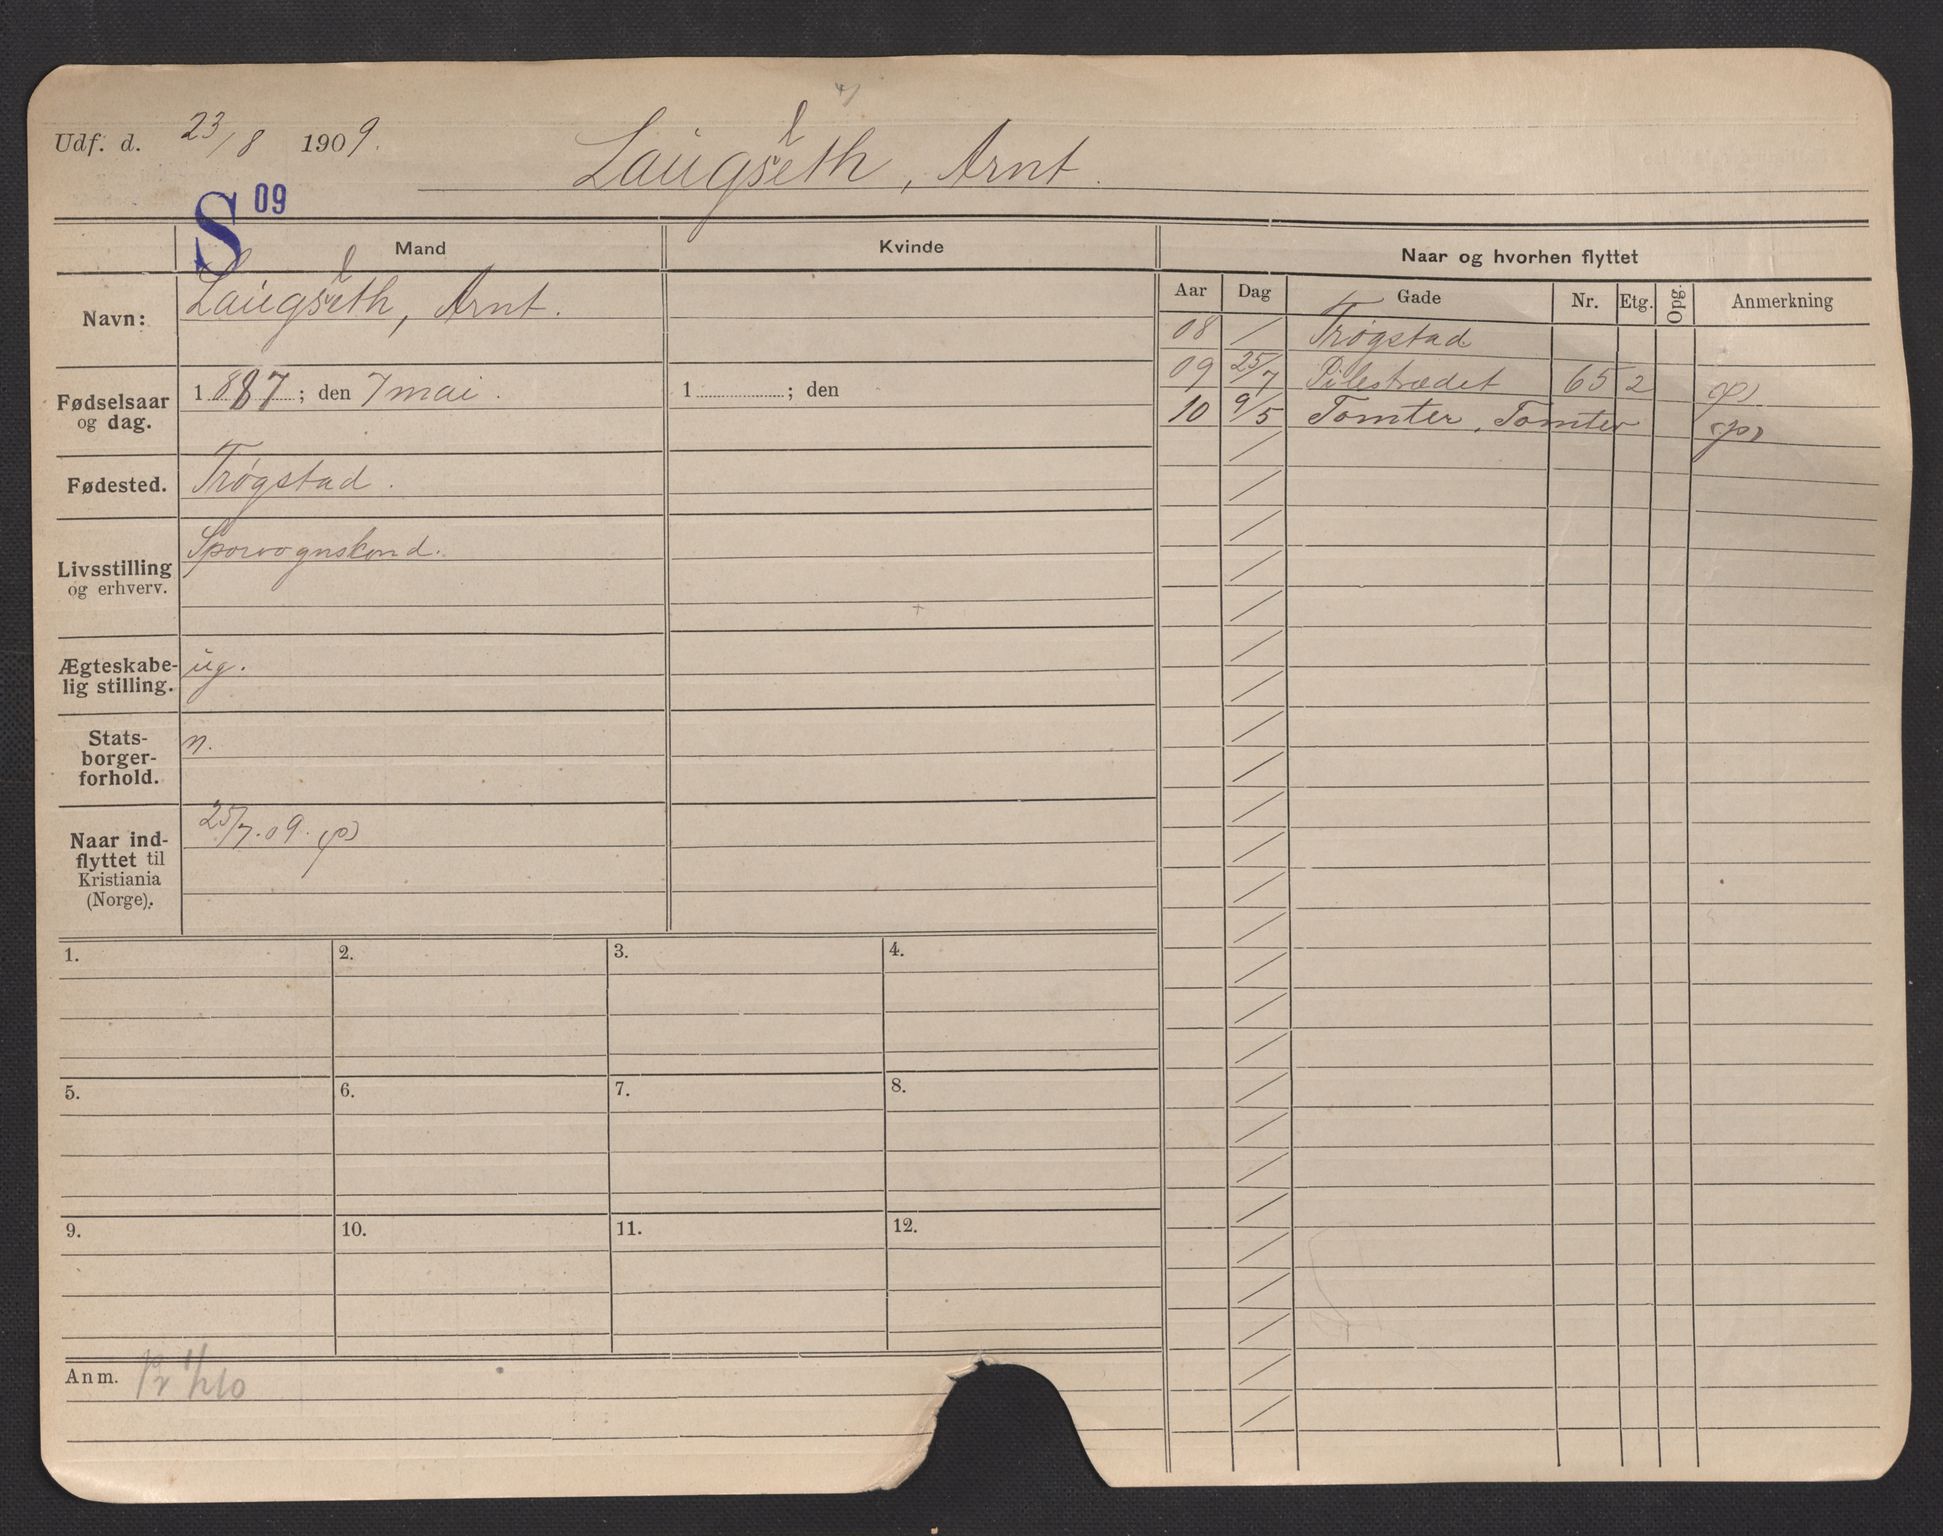 Udf. d. 23/8 1909.
Laugseth, Arnt.
S 09
Mand
Kvinde
Naar og hvorhen flyttet
Navn:
Laugseth, Arnt.
Fødselsaar og dag.
1887; den 7 mai.
1 ; den
Fødested.
Trøgstad.
Livsstilling og erhverv.
Sporvognskond.
Ægteskabe-
lig stilling.
ug.
Stats-
borger-
forhold.
n.
Naar ind-
flyttet til
Kristiania
(Norge).
25/7.09. (p)
Aar Dag Gade Nr. Etg. Opg. Anmerkning
08 / Trøgstad
09 25/7 Pilestrædet 65 2 (p)
10 9/5 Tomter, Tomter (p)
1. 2. 3. 4.
5. 6. 7. 8.
9. 10. 11. 12.
Anm.